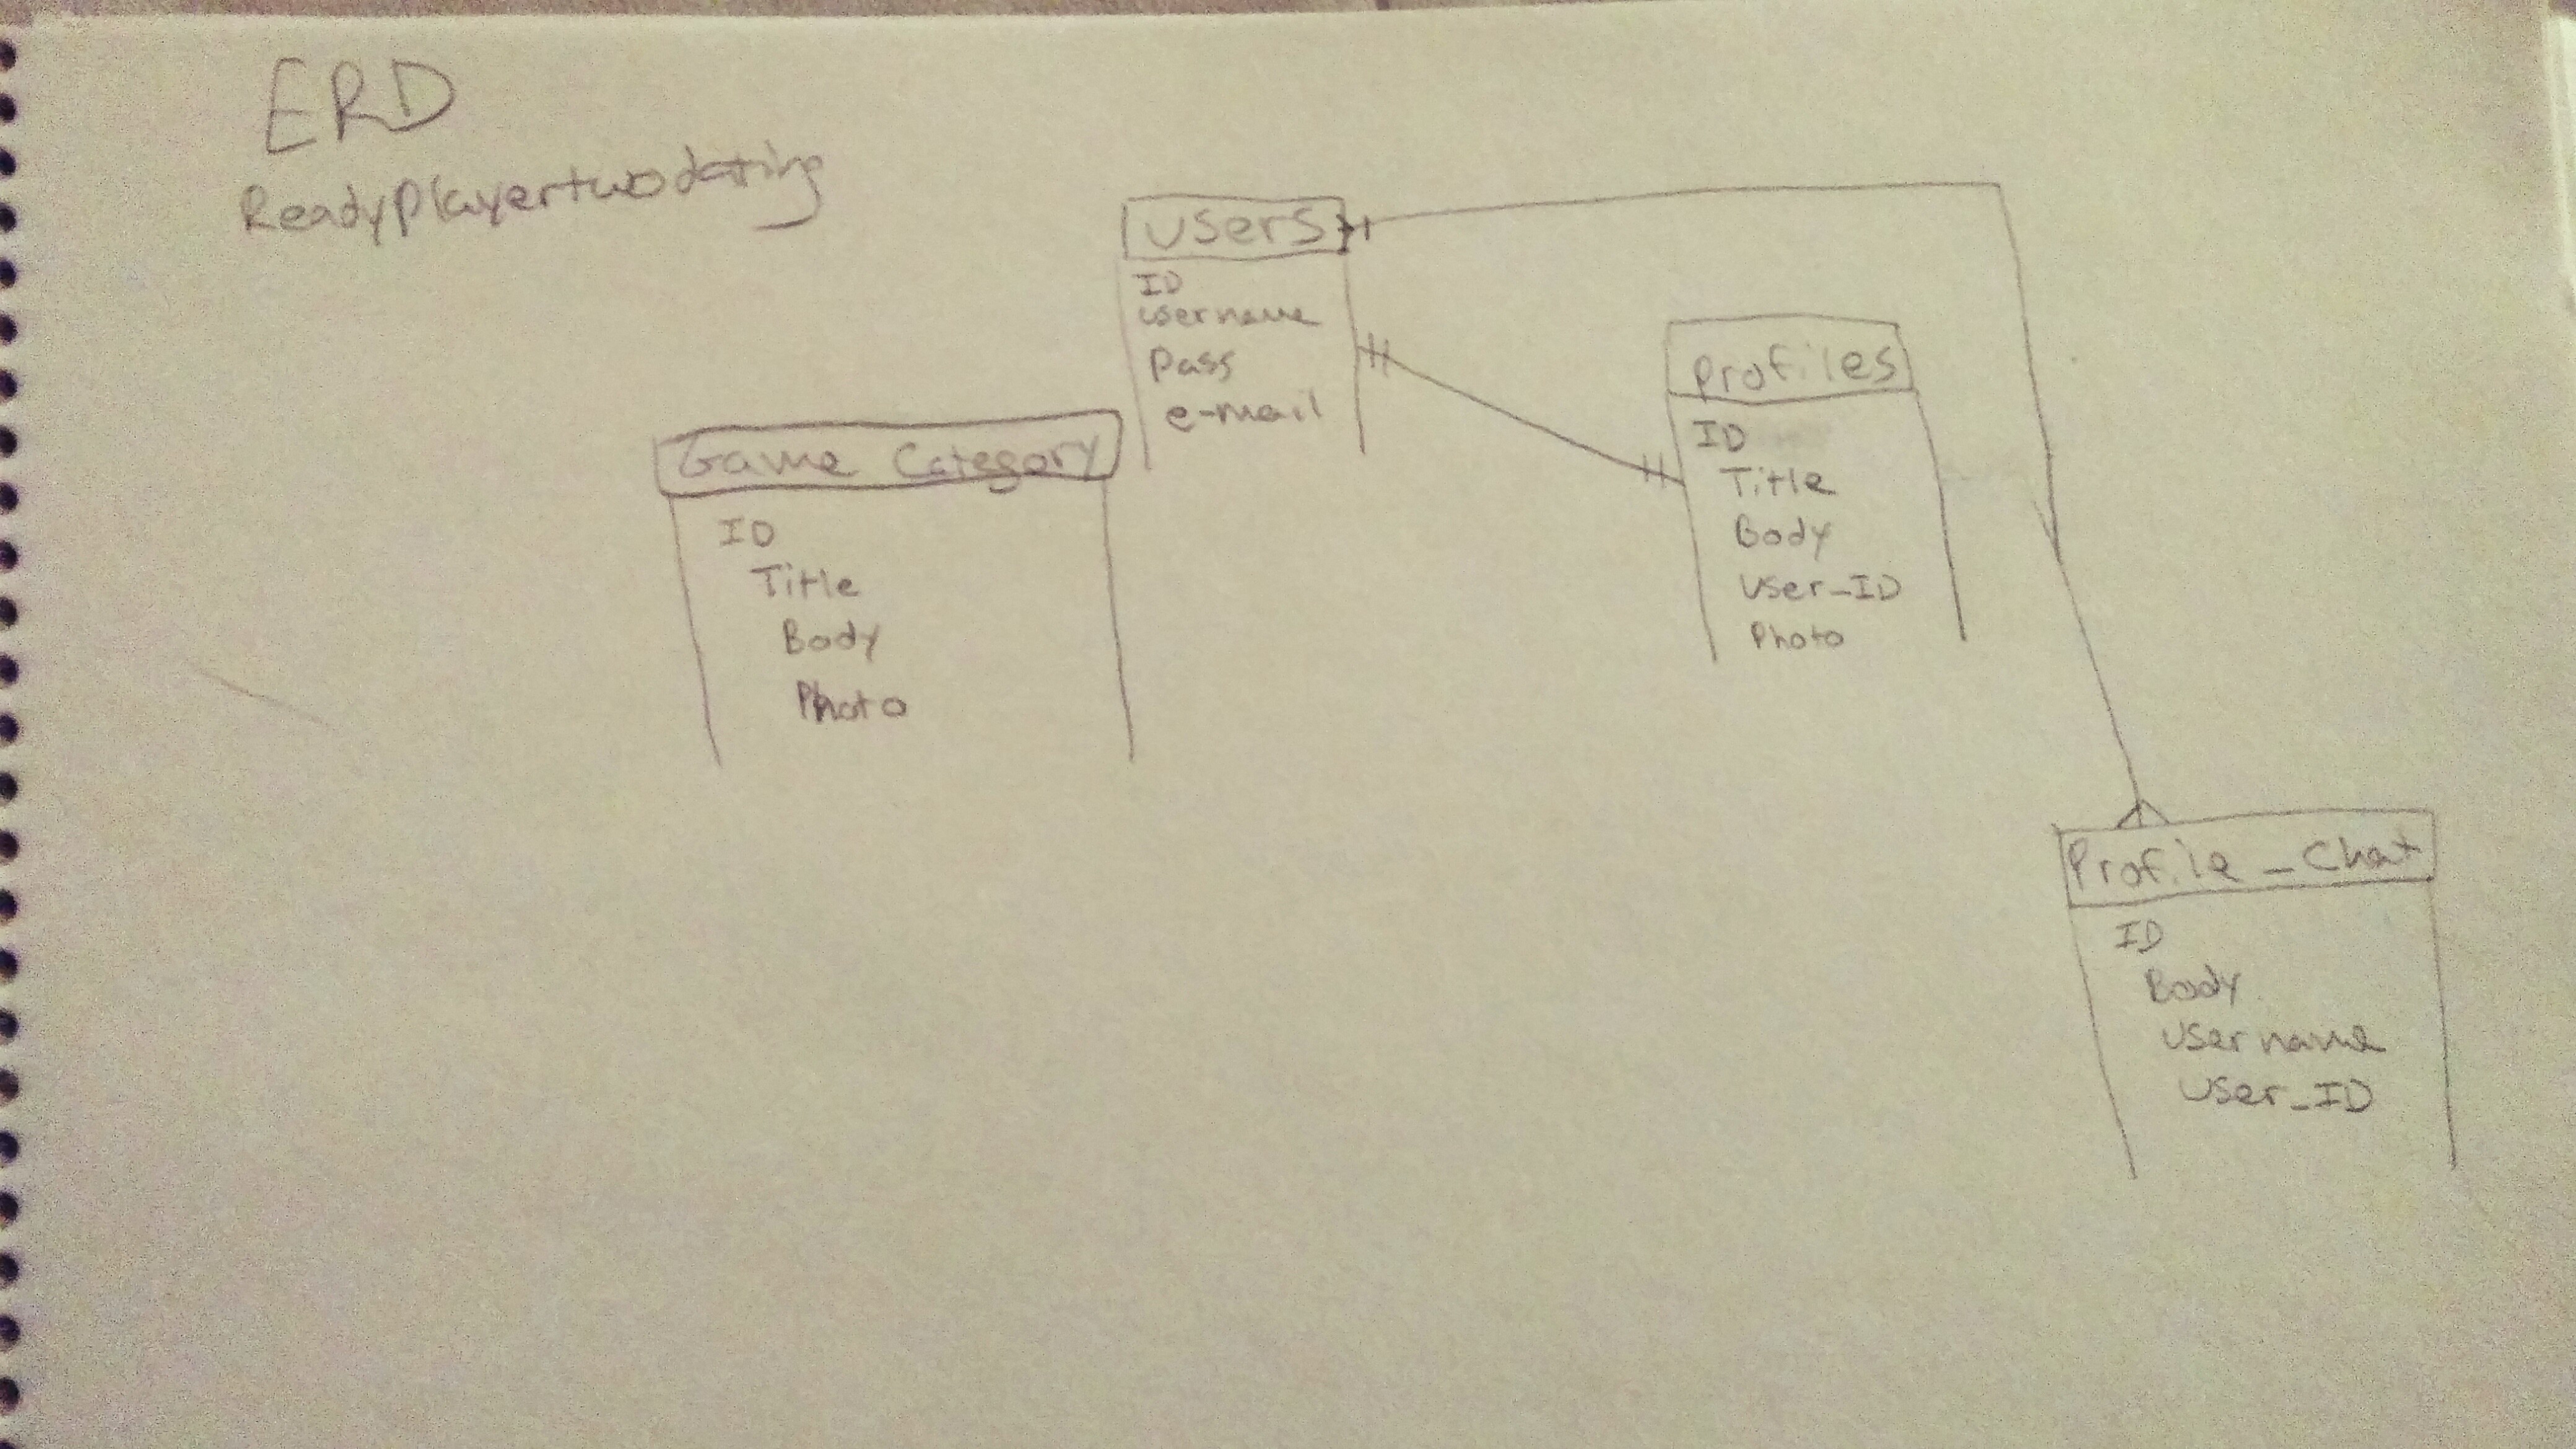 ERD
ReadyPlayertwodating
users
ID
username
Pass
e-mail
Game Category
ID
Title
Body
Photo
profiles
ID
Title
Body
User_ID
Photo
Profile_Chat
ID
Body
username
User_ID